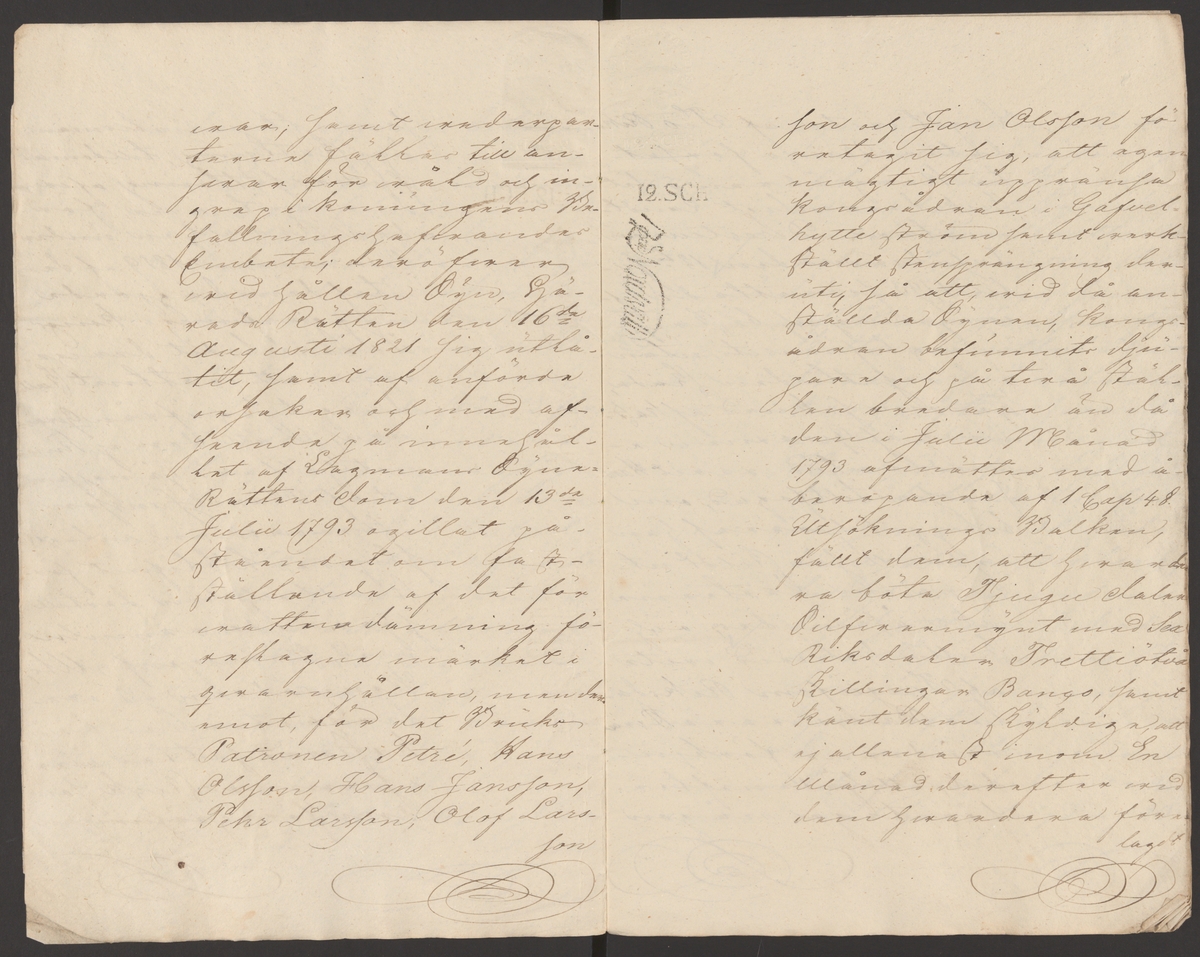 svar, samt wederpar-
terne fällas till an-
svar för wåld och in-
grep i Konungens Be-
fallningshafwandes
Embete; deröfwer
wid hållen Syn, Hä-
rads Rätten den 16de
Augusti 1821 sig utlå-
tit, samt af anförde
orsaker och med af-
seende på innehål-
let af Lagmans Syne-
Rättens dom den 13de
Julii 1793 ogillat på-
ståendet om fast-
ställande af det för
wattendämning fö-
reslagne märket i
qwarnhällan, men der-
emot, för det Bruks
Patronen Petré, Hans
Olsson, Hans Jansson,
Pehr Larsson, Olof Lars-
son
12.SCH
son och Jan Olsson fö-
retagit sig, att egen
mägtigt uppränsa
kongsådran i Gafvel-
hytte ström samt werk-
ställt stensprängning der-
uti, så att, wid då an-
ställda Synen, kongs-
ådran befunnits dju-
pare och på twå stäl-
len bredare än då
den i Julii Månad
1793 afmättes med å-
beropande af 1 Cap 4 §.
Utsöknings Balken,
fällt dem, att hwarde-
ra böta Tjugu daler
Silfwermynt med Sex
Riksdaler Trettiotvå
Skillingar Banco, samt
känt dem skyldige, att
ej allenast inom En
Månad derefter wid
dem hwardera före-
lagdt